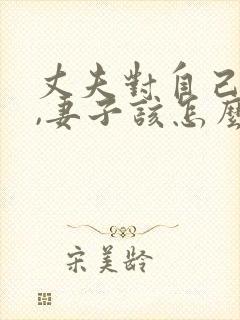 丈夫對自己
,妻子該怎麼
宋美齡